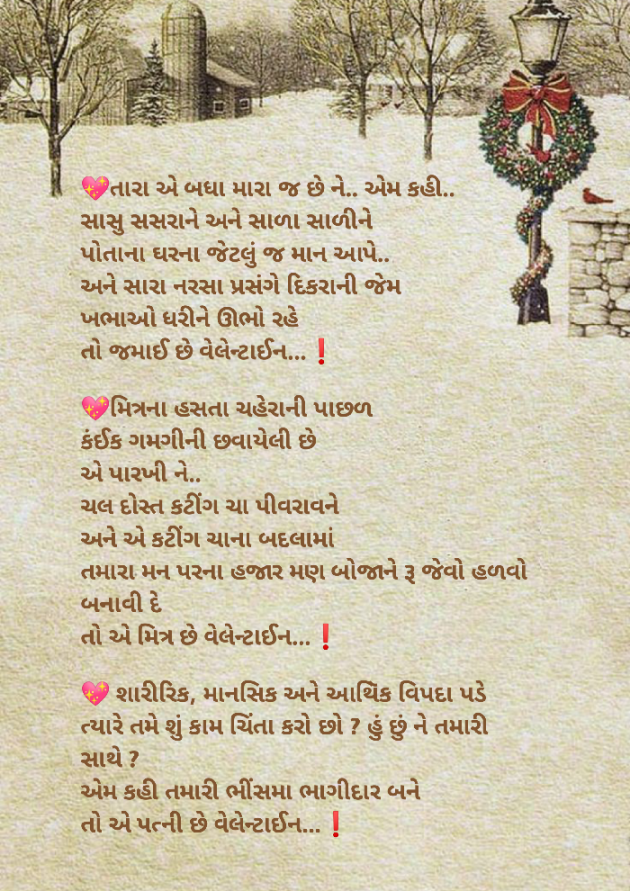 💖તારા એ બધા મારા જ છે ને.. એમ કહી..
સાસુ સસરાને અને સાળા સાળીને
પોતાના ઘરના જેટલું જ માન આપે..
અને સારા નરસા પ્રસંગે દિકરાની જેમ
ખભાઓ ધરીને ઊભો રહે
તો જમાઈ છે વેલેન્ટાઈન...❗
💖મિત્રના હસતા ચહેરાની પાછળ
કંઈક ગમગીની છવાયેલી છે
એ પારખી ને..
ચલ દોસ્ત કટીંગ ચા પીવરાવને
અને એ કટીંગ ચાના બદલામાં
તમારા મન પરના હજાર મણ બોજાને રૂ જેવો હળવો
બનાવી દે
તો એ મિત્ર છે વેલેન્ટાઈન...❗
💖 શારીરિક, માનસિક અને આર્થિક વિપદા પડે
ત્યારે તમે શું કામ ચિંતા કરો છો ? હું છું ને તમારી
સાથે ?
એમ કહી તમારી ભીંસમા ભાગીદાર બને
તો એ પત્ની છે વેલેન્ટાઈન...❗